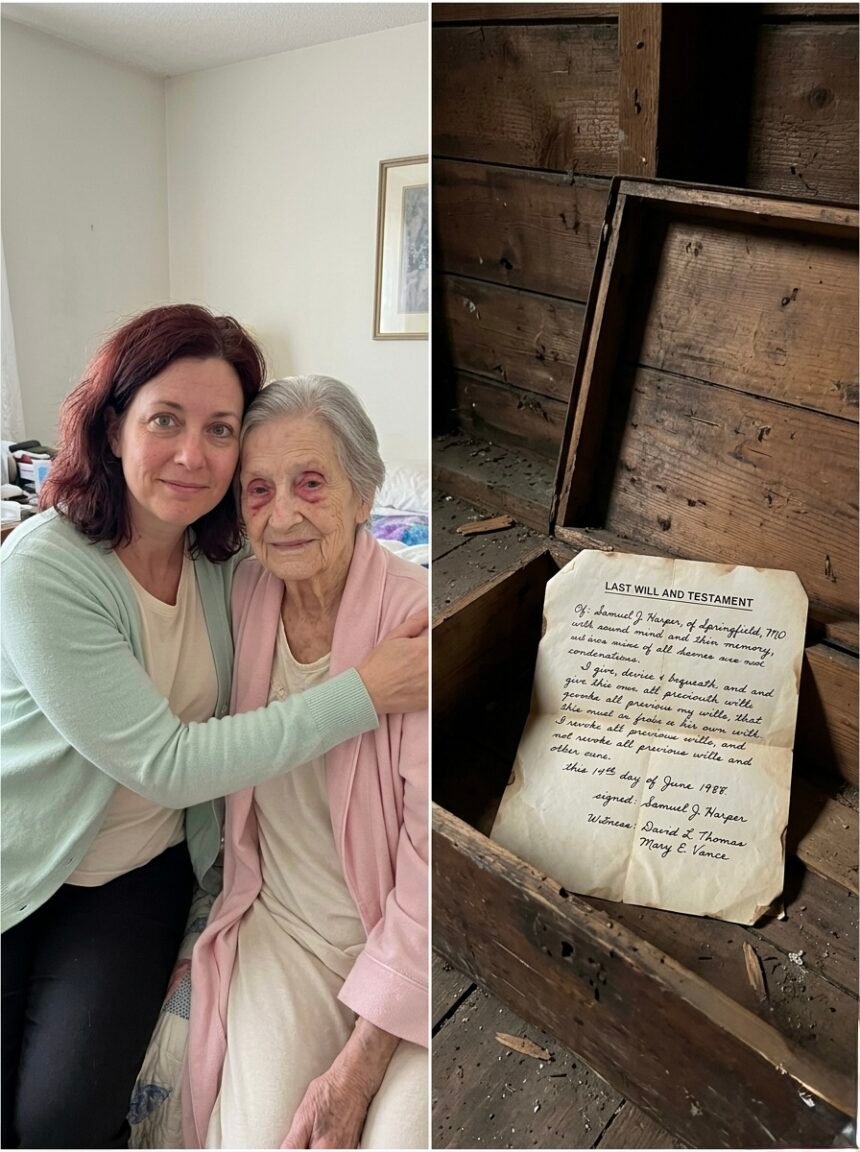 LAST WILL AND TESTAMENT
Of: Samuel J. Harper, of Springfield, MO
with sound mind and thin memory,
of all
condenations.
I give, devise & bequeath, and and
give this all preciouth wills
all previous my wills, that
this must his own with.
I revoke all previous wills, and
not revoke all previous wills and
other
this 14th day of June 1988.
signed: Samuel J. Harper
Witness: David L. Thomas
Mary E. Vance